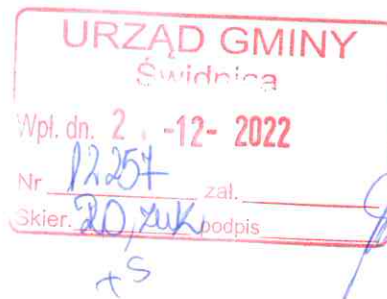 URZĄD GMINY
Świdnica
Wpł. dn. 2 . -12- 2022
Nr 12257 zał.
Skier. podpis